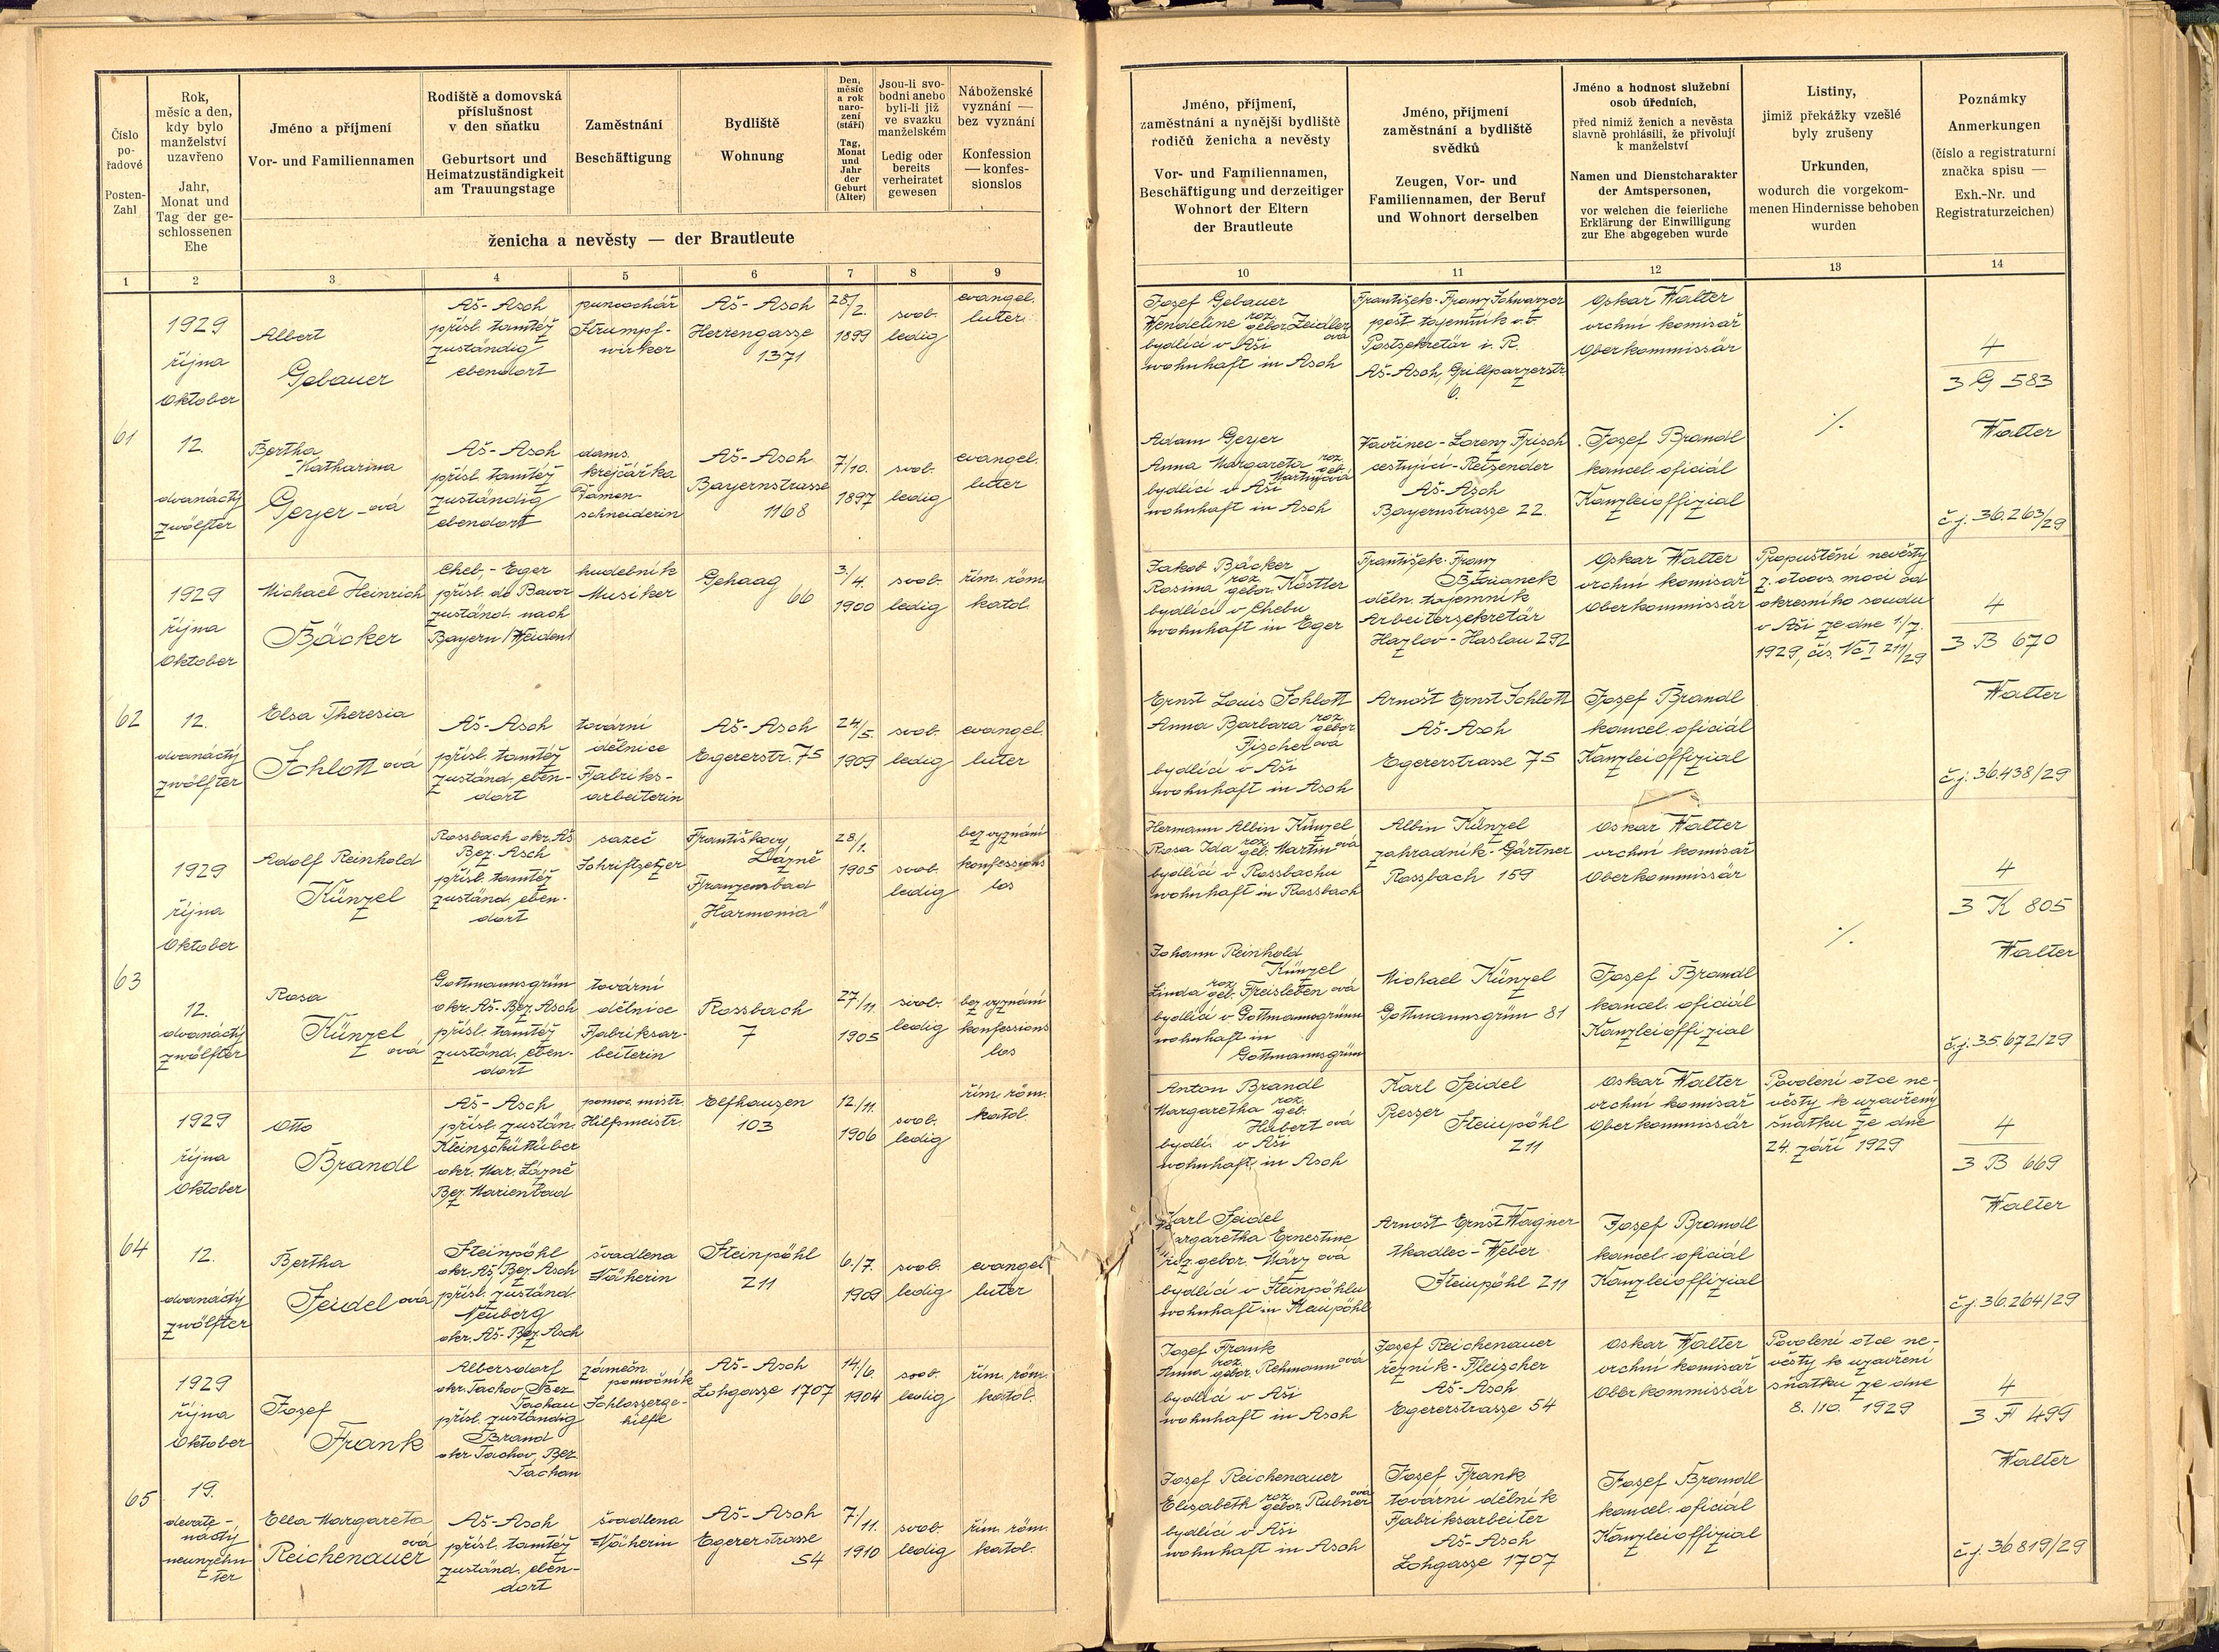 Číslo
po-
řadové
Posten-
Zahl
Rok,
měsíc a den,
kdy bylo
manželství
uzavřeno
Jahr,
Monat und
Tag der ge-
schlossenen
Ehe
Jméno a příjmení
Vor- und Familiennamen
Rodiště a domovská
příslušnost
v den sňatku
Geburtsort und
Heimatzuständigkeit
am Trauungstage
Zaměstnání
Beschäftigung
Bydliště
Wohnung
Den,
měsíc
a rok
naro-
zení
(stáří)
Tag,
Monat
und
Jahr
der
Geburt
(Alter)
Jsou-li svo-
bodni anebo
byli-li již
ve svazku
manželském
Ledig oder
bereits
verheiratet
gewesen
Náboženské
vyznání —
bez vyznání
Konfession
— konfes-
sionslos
ženicha a nevěsty — der Brautleute
1 2 3 4 5 6 7 8 9
Jméno, příjmení,
zaměstnání a nynější bydliště
rodičů ženicha a nevěsty
Vor- und Familiennamen,
Beschäftigung und derzeitiger
Wohnort der Eltern
der Brautleute
Jméno, příjmení
zaměstnání a bydliště
svědků
Zeugen, Vor- und
Familiennamen, der Beruf
und Wohnort derselben
Jméno a hodnost služební
osob úředních,
před nimiž ženich a nevěsta
slavně prohlásili, že přivolují
k manželství
Namen und Dienstcharakter
der Amtspersonen,
vor welchen die feierliche
Erklärung der Einwilligung
zur Ehe abgegeben wurde
Listiny,
jimiž překážky vzešlé
byly zrušeny
Urkunden,
wodurch die vorgekom-
menen Hindernisse behoben
wurden
Poznámky
Anmerkungen
(číslo a registraturní
značka spisu —
Exh.-Nr. und
Registraturzeichen)
10 11 12 13 14
61
1929
října
Oktober
12.
dvanáctý
zwölfter
Albert
Gebauer
Aš - Asch
přísl. tamtéž
zuständig
ebendort
punčochář
Strumpf-
wirker
Aš - Asch
Herrengasse
1371
28./2.
1899
svob.
ledig
evangel.
luter.
Josef Gebauer
Wendeline roz. gebor. Zeidler
ová
bydlící v Aši
wohnhaft in Asch
František - Franz Schwarzer
pošt. tajemník v.v.
Postsekretär i. R.
Aš - Asch, Grillparzerstr.
6.
Oskar Walter
vrchní komisař
Oberkommissär
4
3 G 583
Bertha
Katharina
Geyer - ová
Aš - Asch
přísl. tamtéž
zuständig
ebendort
dams.
krejčářka
Damen-
schneiderin
Aš - Asch
Bayernstrasse
1168
7/10.
1897
svob.
ledig
evangel.
luter
Adam Geyer
Anna Margareta roz. geb.
Martinová
bydlící v Aši
wohnhaft in Asch
Vavřinec - Lorenz Frisch
cestující - Reisender
Aš - Asch
Bayernstrasse 22.
Josef Brandl
kancel. oficiál
Kanzleioffizial
·/.
Walter
č.j. 36.263/29
62
1929
října
Oktober
12.
dvanáctý
zwölfter
Michael Heinrich
Bäcker
Cheb, - Eger
přísl. do Bavor
zuständ. nach
Bayern (Weiden)
hudebník
Musiker
Gehaag
66
3./4.
1900
svob.
ledig
řím. röm.
katol.
Jakob Bäcker
Rosina roz. gebor. Köstler
bydlící v Chebu
wohnhaft in Eger
František - Franz
děln. tajemník
Arbeitersekretär
Hazlov - Haslau 292
Oskar Walter
vrchní komisař
Oberkommissär
Propuštění nevěsty
z otcovs. moci od
okresního soudu
v Aši ze dne 1/7.
1929, čís. Nc I 211/29
4
3 B 670
Elsa Theresia
Schlott ová
Aš - Asch
přísl. tamtéž
zuständ. eben-
dort
tovární
dělnice
Fabriks-
arbeiterin
Aš - Asch
Egererstr. 75
24./5.
1909
svob.
ledig
evangel.
luter
Ernst Louis Schlott
Anna Barbara roz. gebor.
Fischerová
bydlící v Aši
wohnhaft in Asch
Arnošt Ernst Schlott
Aš - Asch
Egererstrasse 75
Josef Brandl
kancel. oficiál
Kanzleioffizial
Walter
č.j. 36.438/29
63
1929
října
Oktober
12.
dvanáctý
zwölfter
Adolf Reinhold
Künzel
Rossbach okr. Aš
Bez. Asch
přísl. tamtéž
zuständ. eben-
dort
sazeč
Schriftsetzer
Františkovy
Lázně
Franzensbad
„Harmonia"
28/1.
1905
svob.
ledig
bez vyznání
konfessions
los
Hermann Albin Künzel
Rosa Ida roz. geb. Martin ová
bydlící v Rossbachu
wohnhaft in Rossbach
Albin Künzel
zahradník - Gärtner
Rossbach 159
Oskar Walter
vrchní komisař
Oberkommissär
4
3 K 805
Rosa
Künzel
ová
Gottmannsgrün
okr. Aš - Bez. Asch
přísl. tamtéž
zuständ. eben-
dort
tovární
dělnice
Fabriksar-
beiterin
Rossbach
7
27./11.
1905
svob.
ledig
bez vyznání
konfessions
los
Johann Reinhold
Künzel
Linda roz. geb. Freisleben ová
bydlící v Gottmannsgrünu
wohnhaft in
Gottmannsgrün
Michael Künzel
Gottmannsgrün 81
Josef Brandl
kancel. oficiál
Kanzleioffizial
·/.
Walter
č.j. 35.672/29
64
1929
října
Oktober
12.
dvanáctý
zwölfter
Otto
Brandl
Aš - Asch
přísl. zustän.
Kleinschüttüber
okr. Mar. Lázně
Bez. Marienbad
pomoc. mistr.
Hilfsmeistr.
Elfhausen
103
12./11.
1906
svob.
ledig
řím. röm.
katol.
Anton Brandl
Margaretha roz. geb.
Hubert ová
bydlí. v Aši
wohnhaft in Asch
Karl Seidel
Presser
Steinpöhl
211
Oskar Walter
vrchní komisař
Oberkommissär
Povolení otce ne-
věsty k uzavření
sňatku ze dne
24. září 1929
4
3 B 669
Bertha
Seidel ová
Steinpöhl
okr. Aš Bez. Asch
přísl. zuständ.
Neuberg
okr. Aš - Bez. Asch
švadlena
Näherin
Steinpöhl
211
6./7.
1909
svob.
ledig
evangel
luter
Karl Seidel
argaretha Ernestine
roz. gebor. März ová
bydlící v Steinpöhlu
wohnhaft in Steinpöhl
Arnošt Ernst Wagner
tkadlec - Weber
Steinpöhl 211
Josef Brandl
kancel. oficiál
Kanzleioffizial
Walter
č.j. 36.264/29
65
1929
října
Oktober
19.
devate-
náctý
neunzehn
ter
Josef
Frank
Albersdorf
okr. Tachov, Bez.
Tachau
přísl. zuständig
Brand
okr. Tachov, Bez.
Tachau
zámečn.
pomocník
Schlosserge-
hilfe
Aš - Asch
Lohgasse 1707
14./6.
1904
svob.
ledig
řím. röm.
katol.
Josef Frank
Anna roz. gebor. Rehmann ová
bydlící v Aši
wohnhaft in Asch
Josef Reichenauer
řezník - Fleischer
Aš - Asch
Egererstrasse 54
Oskar Walter
vrchní komisař
Oberkommissär
Povolení otce ne-
věsty k uzavření
sňatku ze dne
8./10. 1929
4
3 F 499
Ella Margareta
ová
Reichenauer
Aš - Asch
přísl. tamtéž
zuständ. eben-
dort
švadlena
Näherin
Aš - Asch
Egererstrasse
54
7./11.
1910
svob.
ledig
řím. röm.
katol.
Josef Reichenauer
Elisabeth roz. gebor. Rubner ová
bydlící v Aši
wohnhaft in Asch
Josef Frank
tovární dělník
Fabriksarbeiter
Aš - Asch
Lohgasse 1707
Josef Brandl
kancel. oficiál
Kanzleioffizial
Walter
č.j. 36.819/29